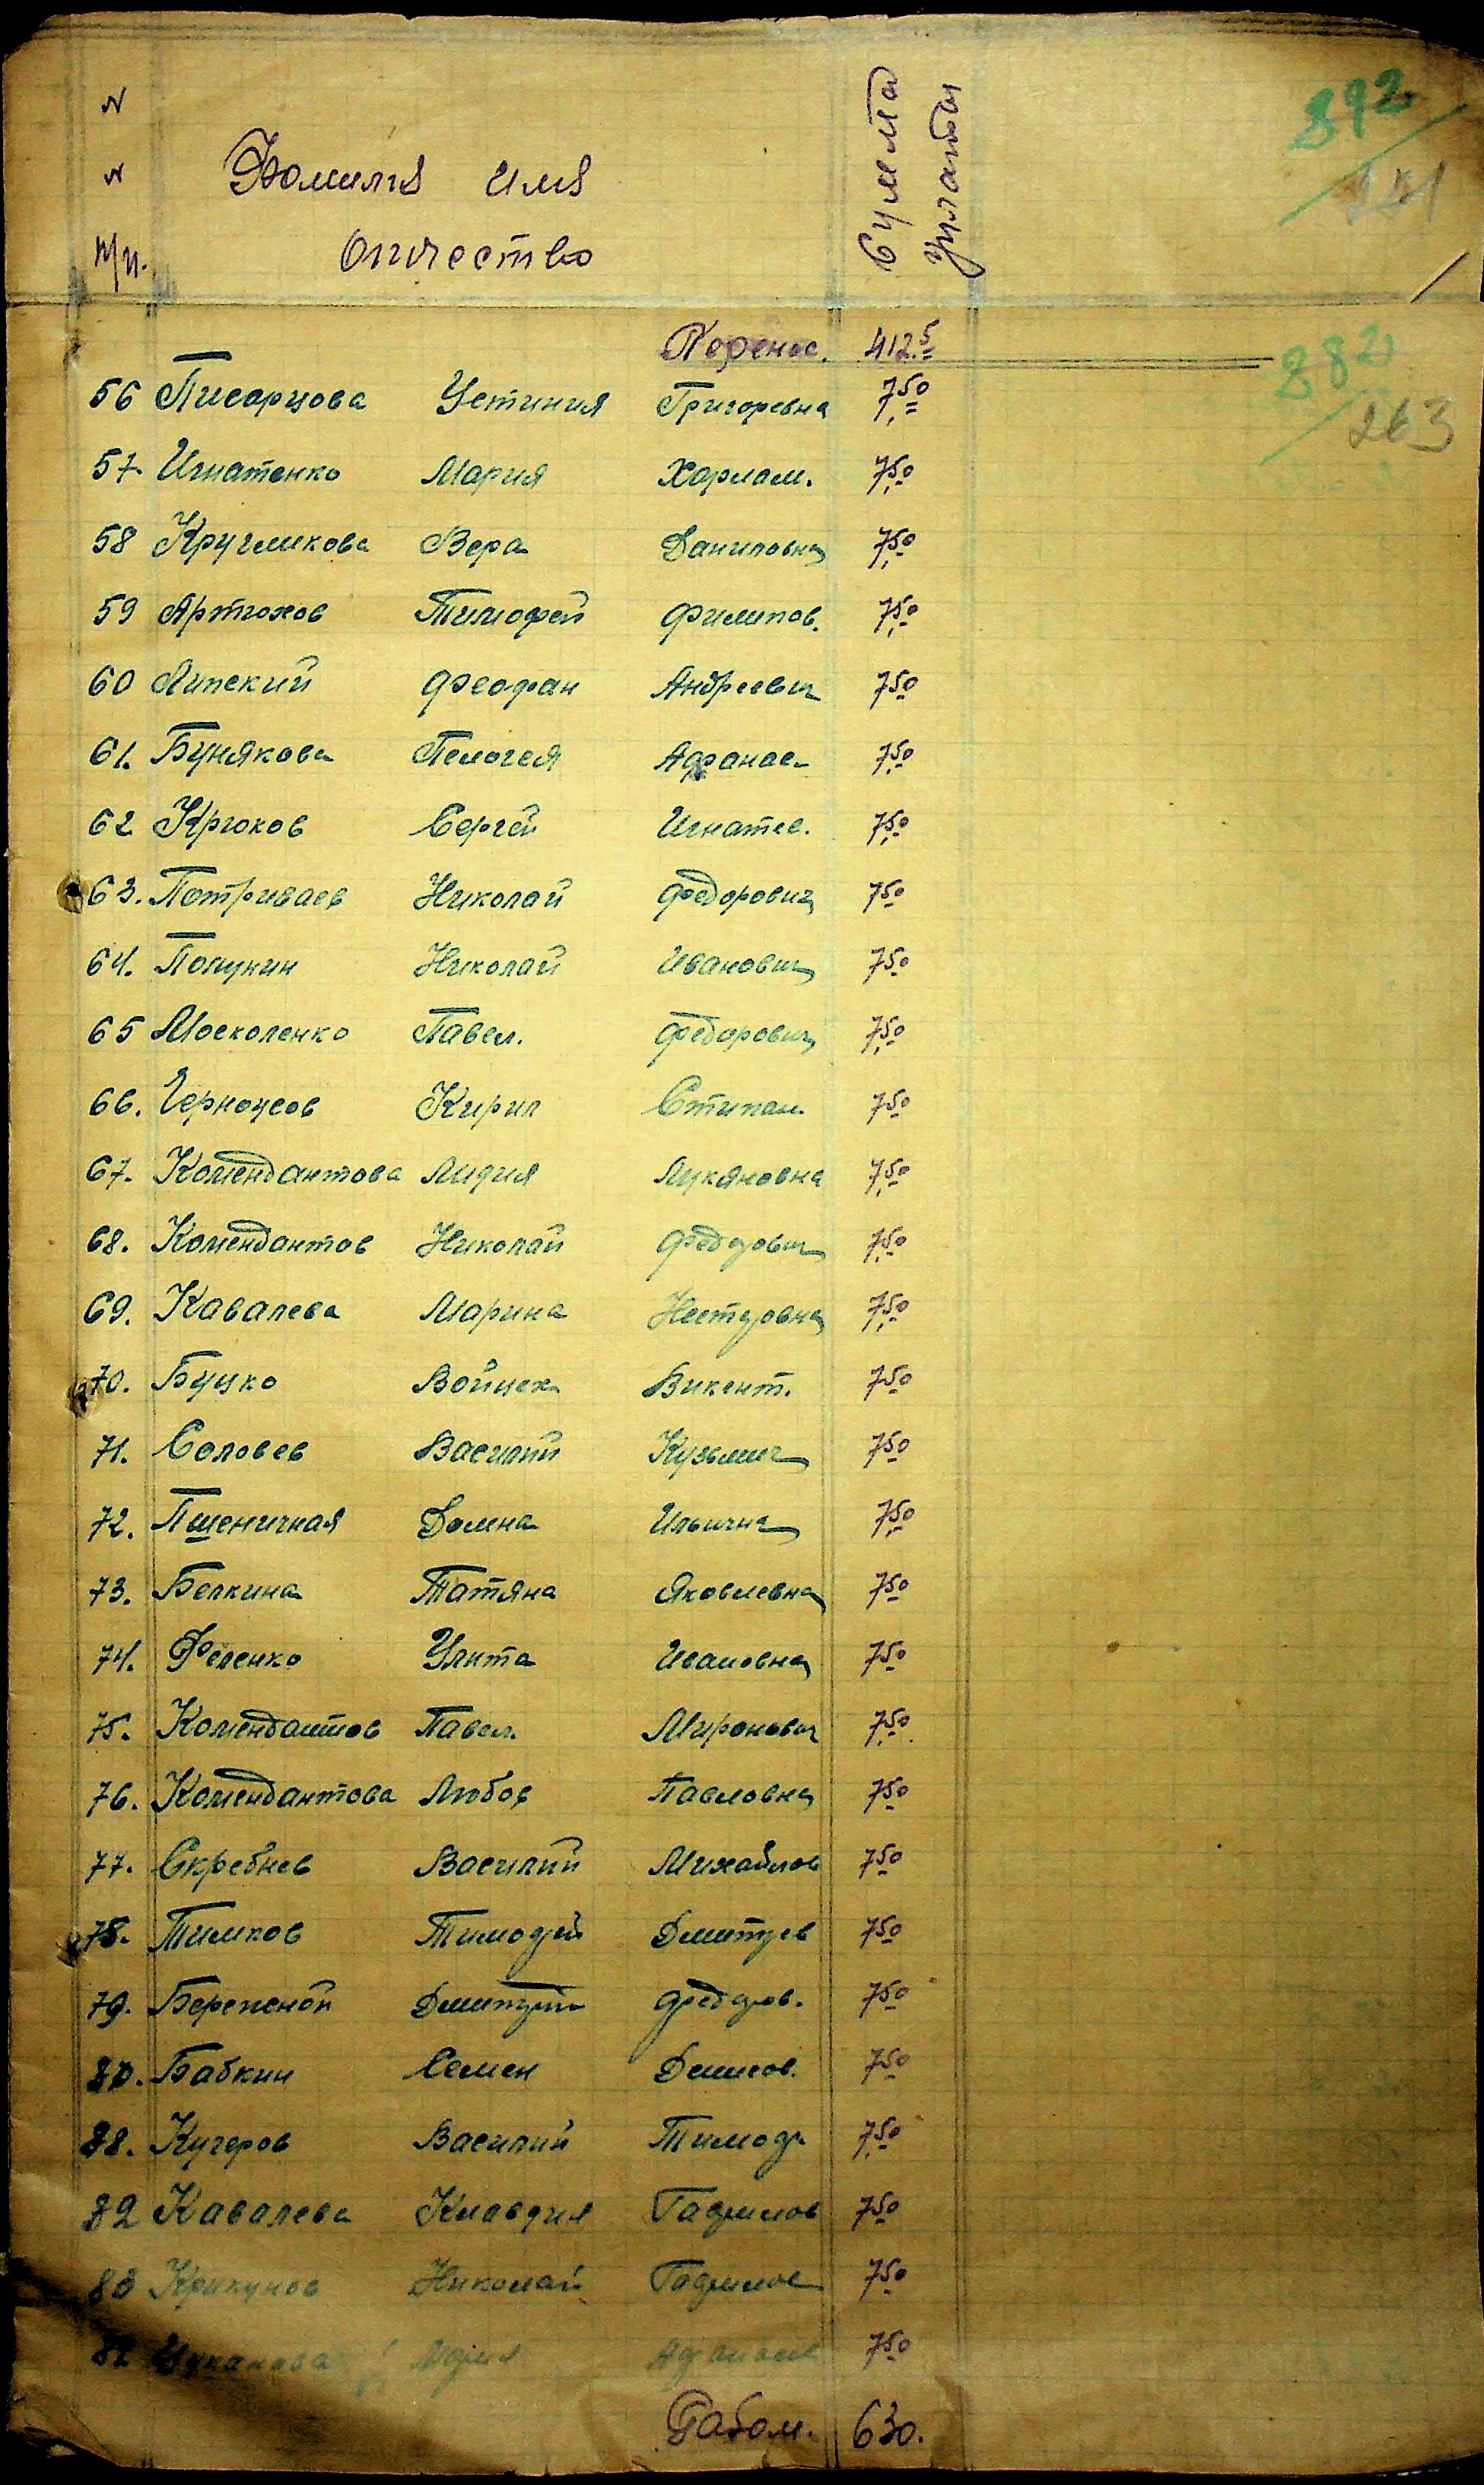 N
N Фамилия имя
п/п. отчество
Сумма уплаты
892
882
263
Перенос. 412.5
56 Писарцова Устиния Григоревна 7,50
57. Игнатенко Мария Харлам. 7,50
58 Кругликова Вера Даниловна 7,50
59 Артюхов Тимофей Филипов. 7,50
60 Липский Феофан Андреевич 7,50
61. Бунякова Пелогея Афанас. 7,50
62 Крюков Сергей Игнатее. 7,50
63. Потриваев Николай Федорович 7,50
64. Попунин Николай Иванович 7,50
65 Москоленко Павел. Федорович 7,50
66. Черноусов Кирил Стипан. 7,50
67. Комендантова Лидия Лукяновна 7,50
68. Комендантов Николай Федорович 7,50
69. Кавалева Марина Несторовна 7,50
70. Буцко Войцех Викент. 7,50
71. Соловев Василий Кузьмич 7,50
72. Пшеничная Домна Ильична 7,50
73. Белкина Татяна Яковлевна 7,50
74. Феленко Улита Ивановна 7,50
75. Комендантов Павел. Миронович 7,50
76. Комендантова Любов Павловна 7,50
77. Скребнев Василий Михайлов 7,50
78. Тимков Тимофей Дмитрев 7,50
79. Дмитрий Федоров. 7,50
80. Бабкин Семен Денисов. 7,50
Кучеров Василий Тимоф 7,50
82 Кавалева Клавдия Гаврилов 7,50
83 Крикунов Николай Гаврилов 7,50
Цуканова Мария 7,50
630.